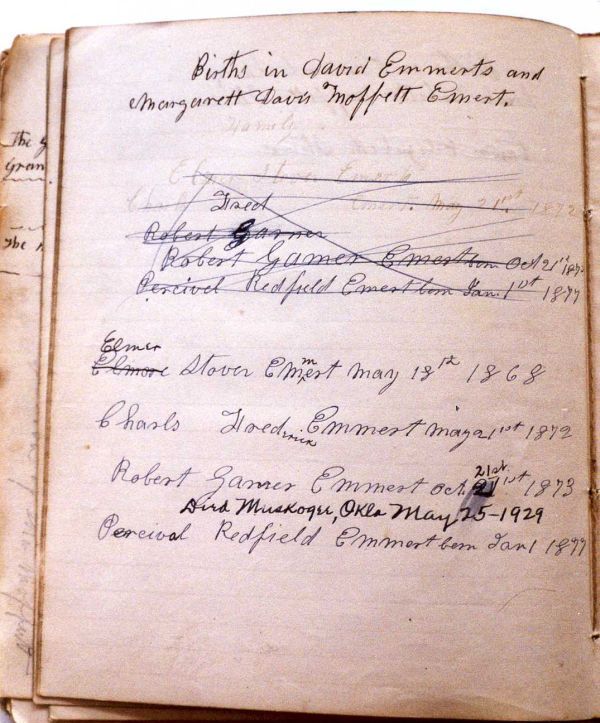 Births in David Emmerts and
Margarett Davis Moffett Emert.
Family
Elmer Stover Emert
Charls Fred Emert. May 21st. 1872
Robert Garner
Robert Garner Emert born Oct 21st 187
Percivel Redfield Emert born Jan. 1st 1877
Elmer
Elmore Stover Emmert May 18th 1868
Charls Fredrick Emmert may 21st 1872
21st.
Robert Garner Emmert Oct. 1st 1873
Died Muskogee, Okla May 25-1929
Percival Redfield Emmert born Jan 1 1877
The
Gran
The